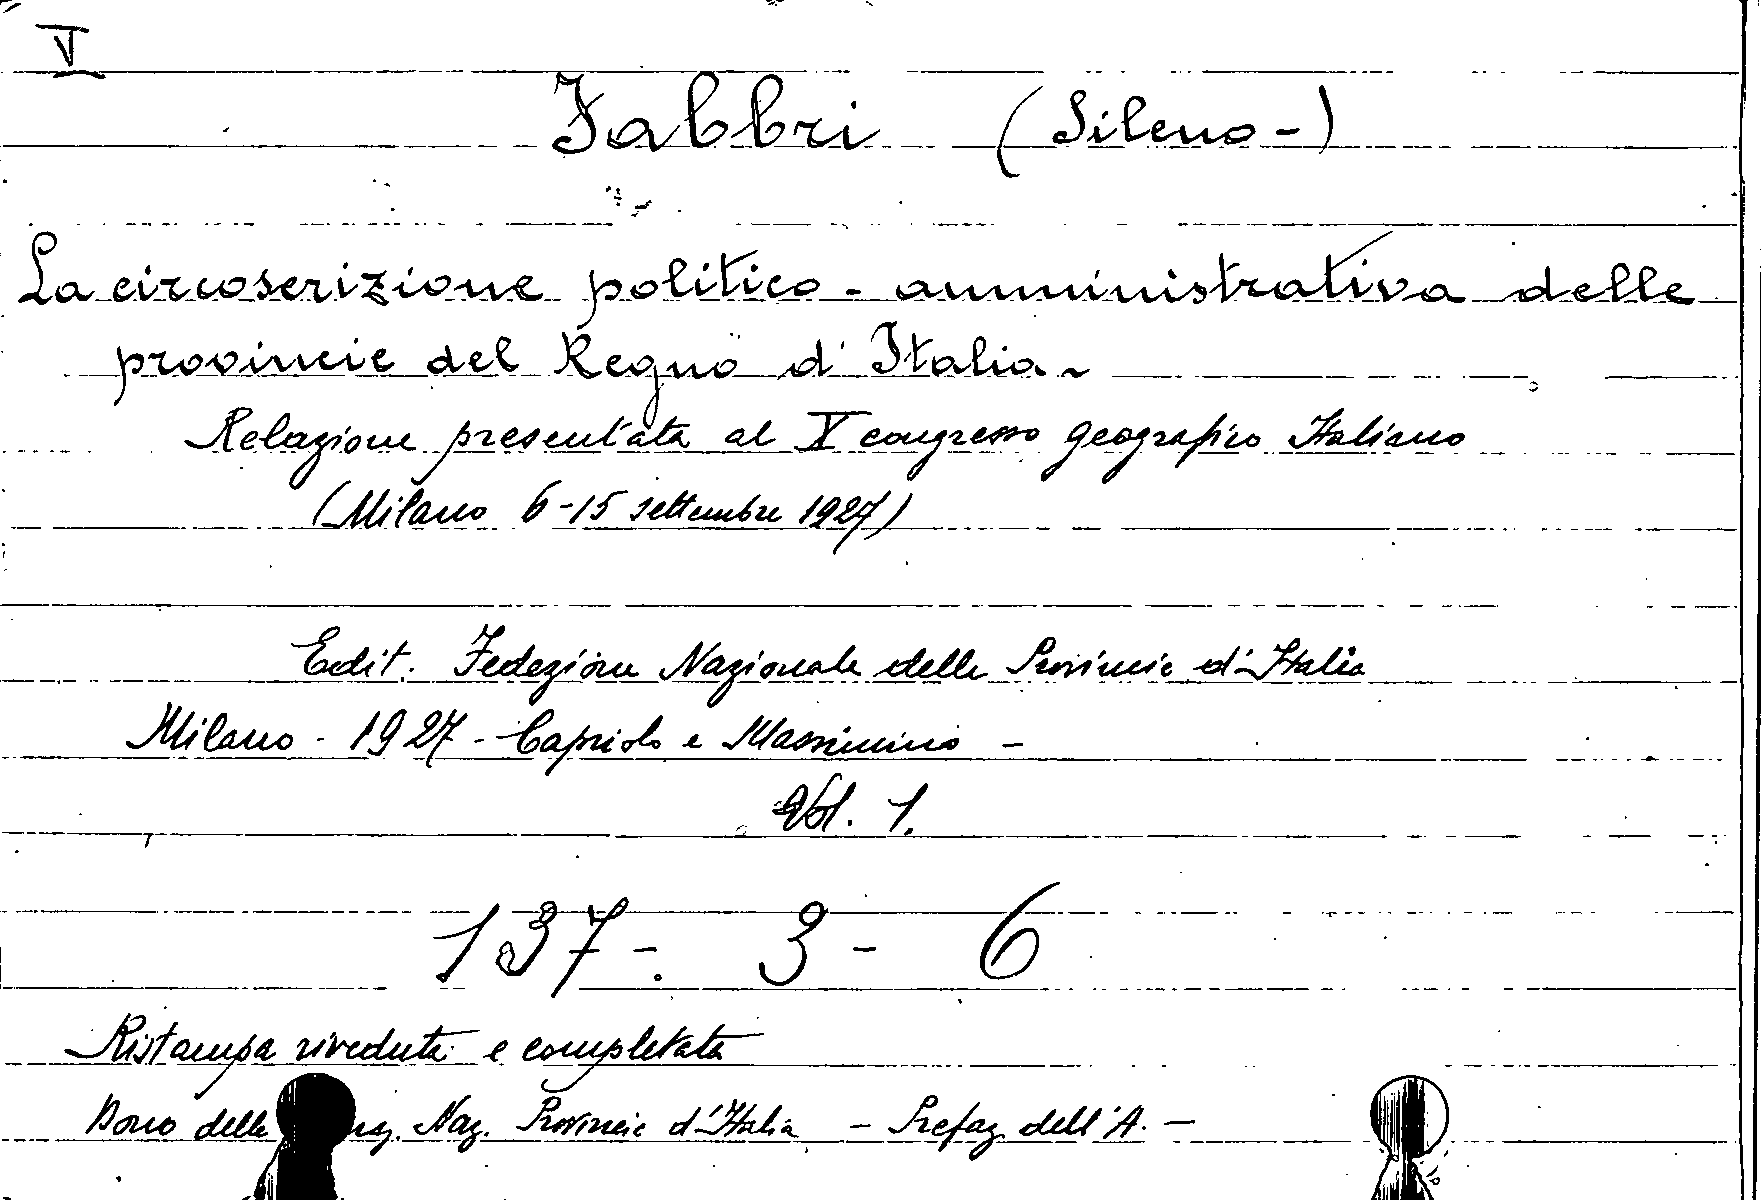 V
Fabbri (Sileno-)
La circoscrizione politico-amministrativa delle
provincie del Regno d'Italia.-
Relazione presentata al X congresso geografico Italiano
(Milano 6-15 settembre 1927)
Edit. Fedezione Nazionale delle Provincie d'Italia
Milano - 1927 - Capriolo e Massimino -
Vol. 1.
137-. 3 - 6
Ristampa riveduta e completata
Dono della Naz. Provincie d'Italia - Prefaz. dell'A. -